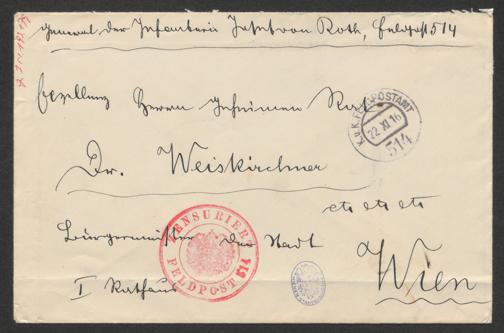 General der Infanterie Josef von Roth, Feldpost 514
Exzellenz Herrn Geheimen Rat
K.u.K. FELDPOSTAMT
22 XI 16
514
Dr. Weiskirchner
etc etc etc
ZENSURIERT
FELDPOST 514
Bürgermeister der Stadt
Wien
I Rathaus